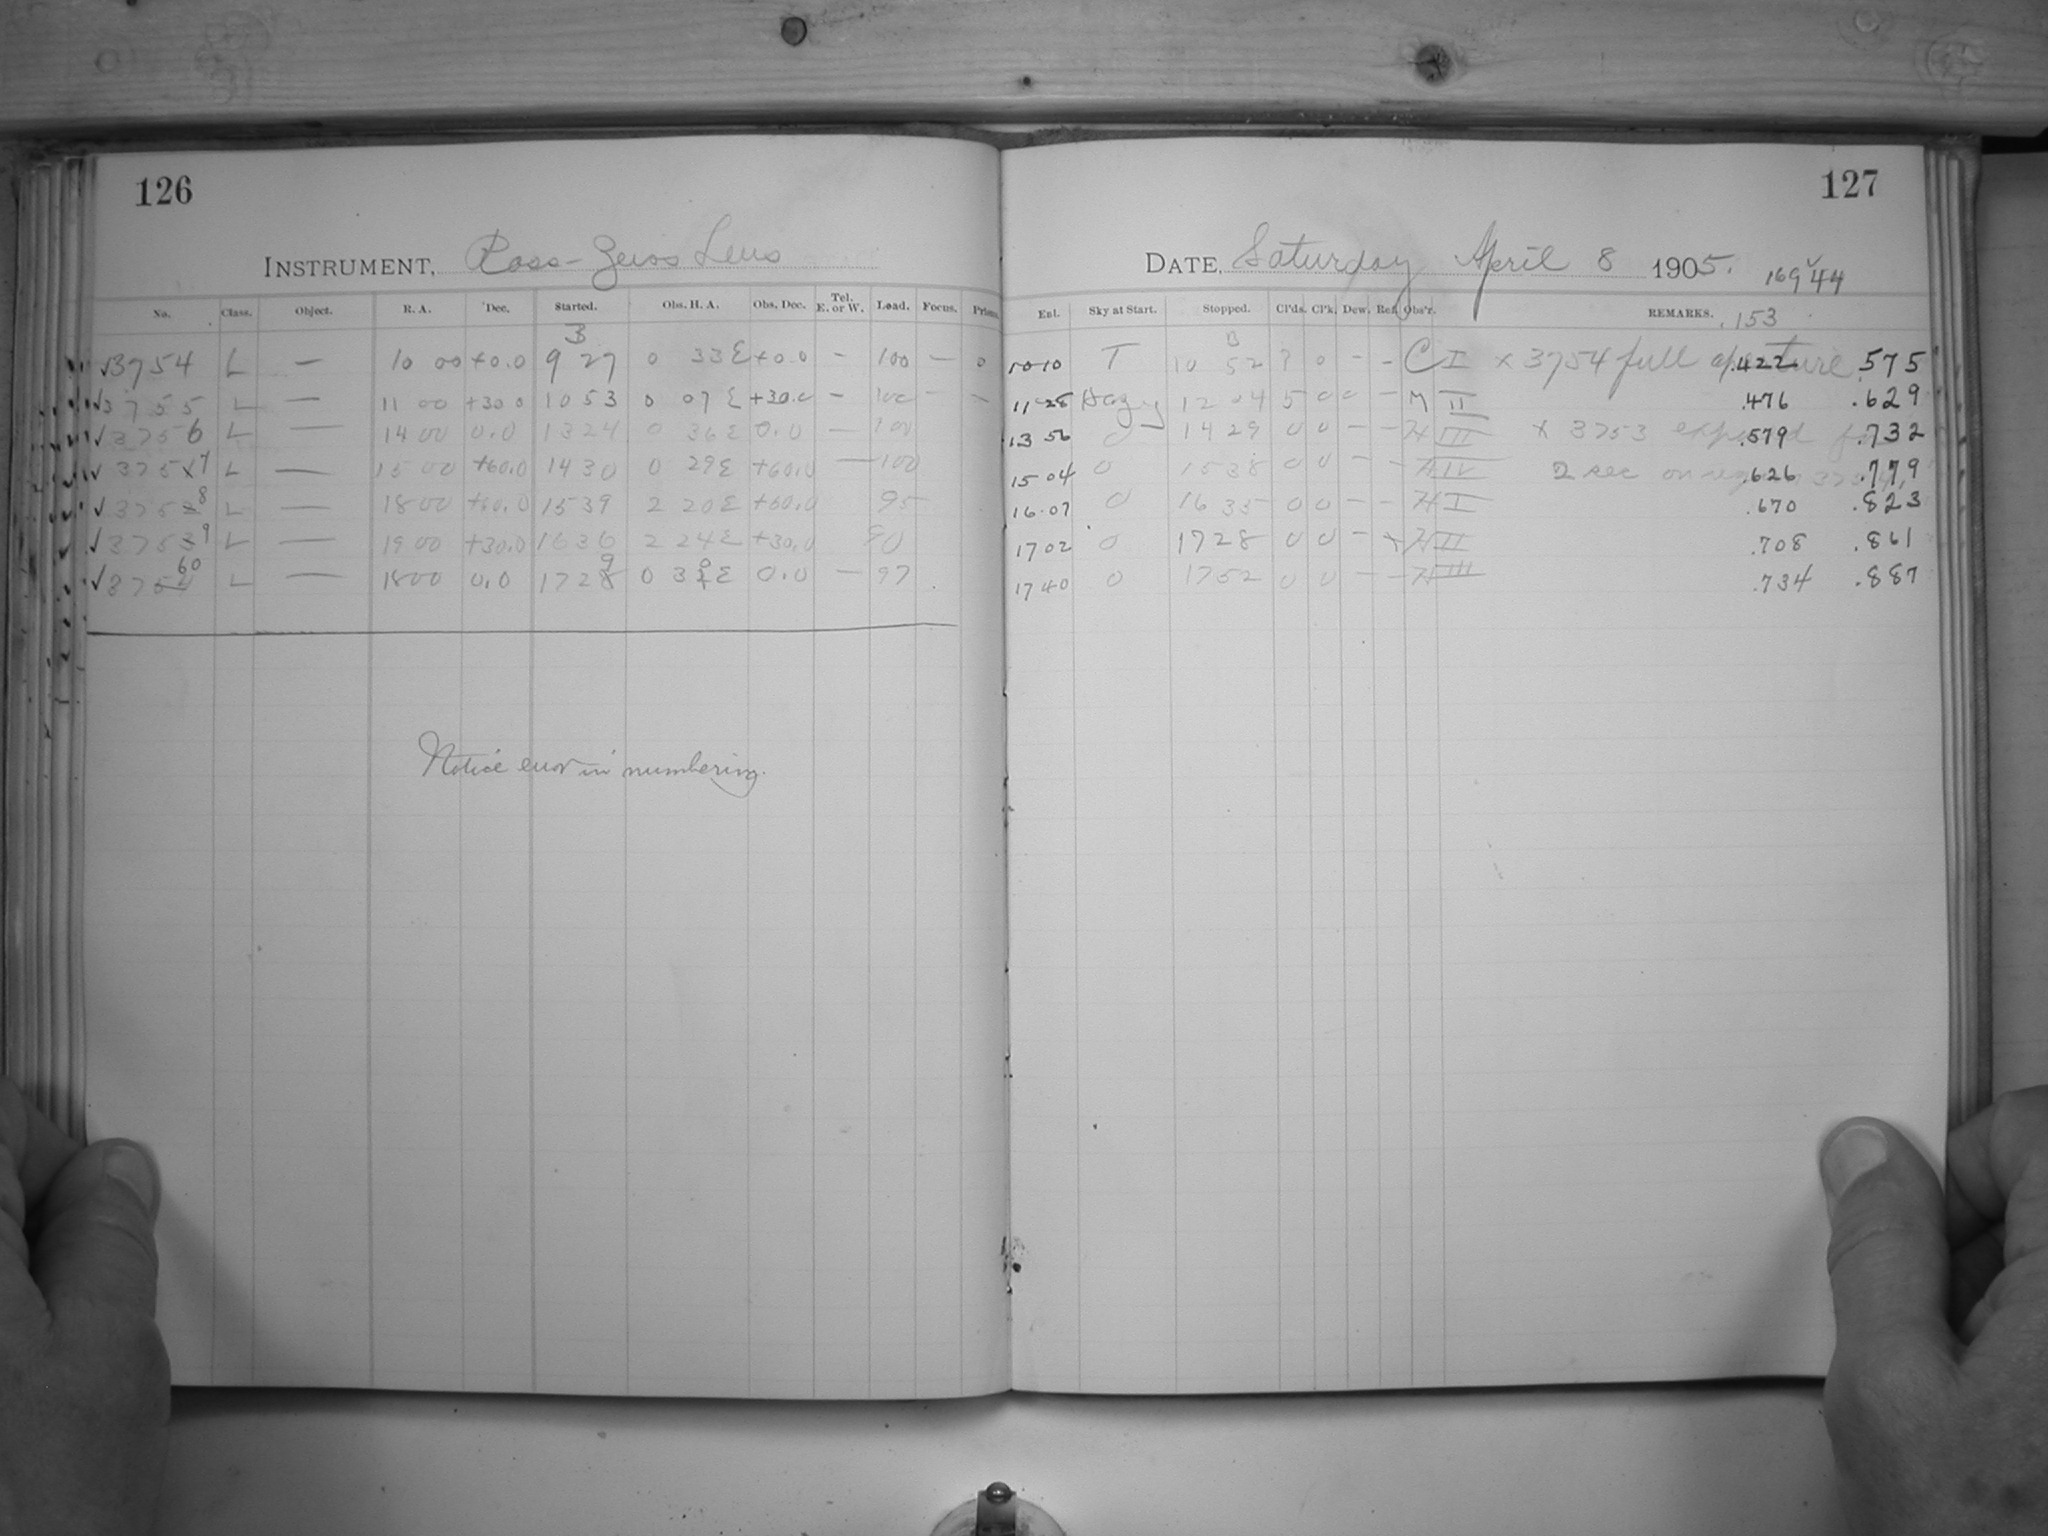 126
INSTRUMENT, Ross-Zeiss Lens
No. Class. Object. R. A. Dec. Started. Obs. H. A. Obs. Dec. Tel. E. or W. Load. Focus. Prism.
B
√3754 L — 10 00 +0.0 9 27 0 33 E +0.0 — 100 — 0
√3755 L — 11 00 +30 0 10 53 0 07 E +30.0 — 100 — —
√3756 L — 14 00 0.0 13 24 0 36 E 0.0 — 100
√3757 L — 15 00 +60.0 14 30 0 29 E +60.0 — 100
√3758 L — 18 00 +60.0 15 39 2 20 E +60.0 95
√3759 L — 19 00 +30.0 16 36 2 24 E +30.0 90
√3760 L — 18 00 0.0 17 29 0 30 E 0.0 — 97
Notice error in numbering.
127
DATE, Saturday April 8 1905. 16944
Ent. Sky at Start. Stopped. Cl'ds. Cl'k. Dew. Ref. Obs'r. REMARKS. .153
B
10 10 T 10 52 ? 0 — — C I × 3754 full aperture .422 .575
11 28 Hazy 12 04 5 0 0 — M II .476 .629
13 56 0 14 29 0 0 — — H III × 3753 exposed .579 .732
15 04 0 15 38 0 0 — — H IV 2 sec on region .626 .779
16.07 0 16 35 0 0 — — H I .670 .823
17 02 0 17 28 0 0 — H II .708 .861
17 40 0 17 52 0 0 — — H III .734 .887